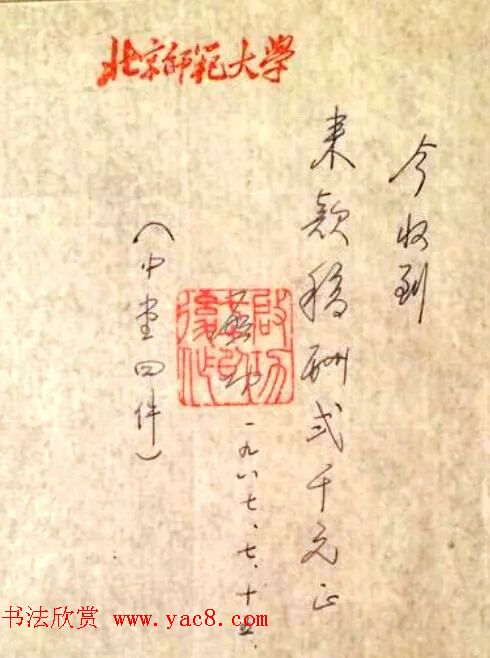 北京師範大學
今收到
来款稿酬弍千元正
启功 一九八七、七、十五.
（中堂四件）
啟功
书法欣赏 www.yac8.com